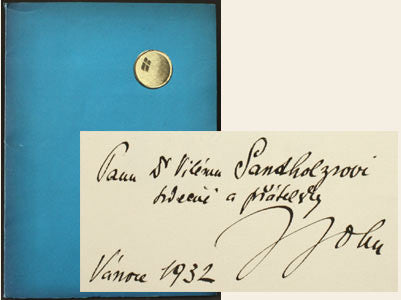 Panu Dr Vilému Šandholzrovi
srdečně a přátelsky
J John
Vánoce 1932